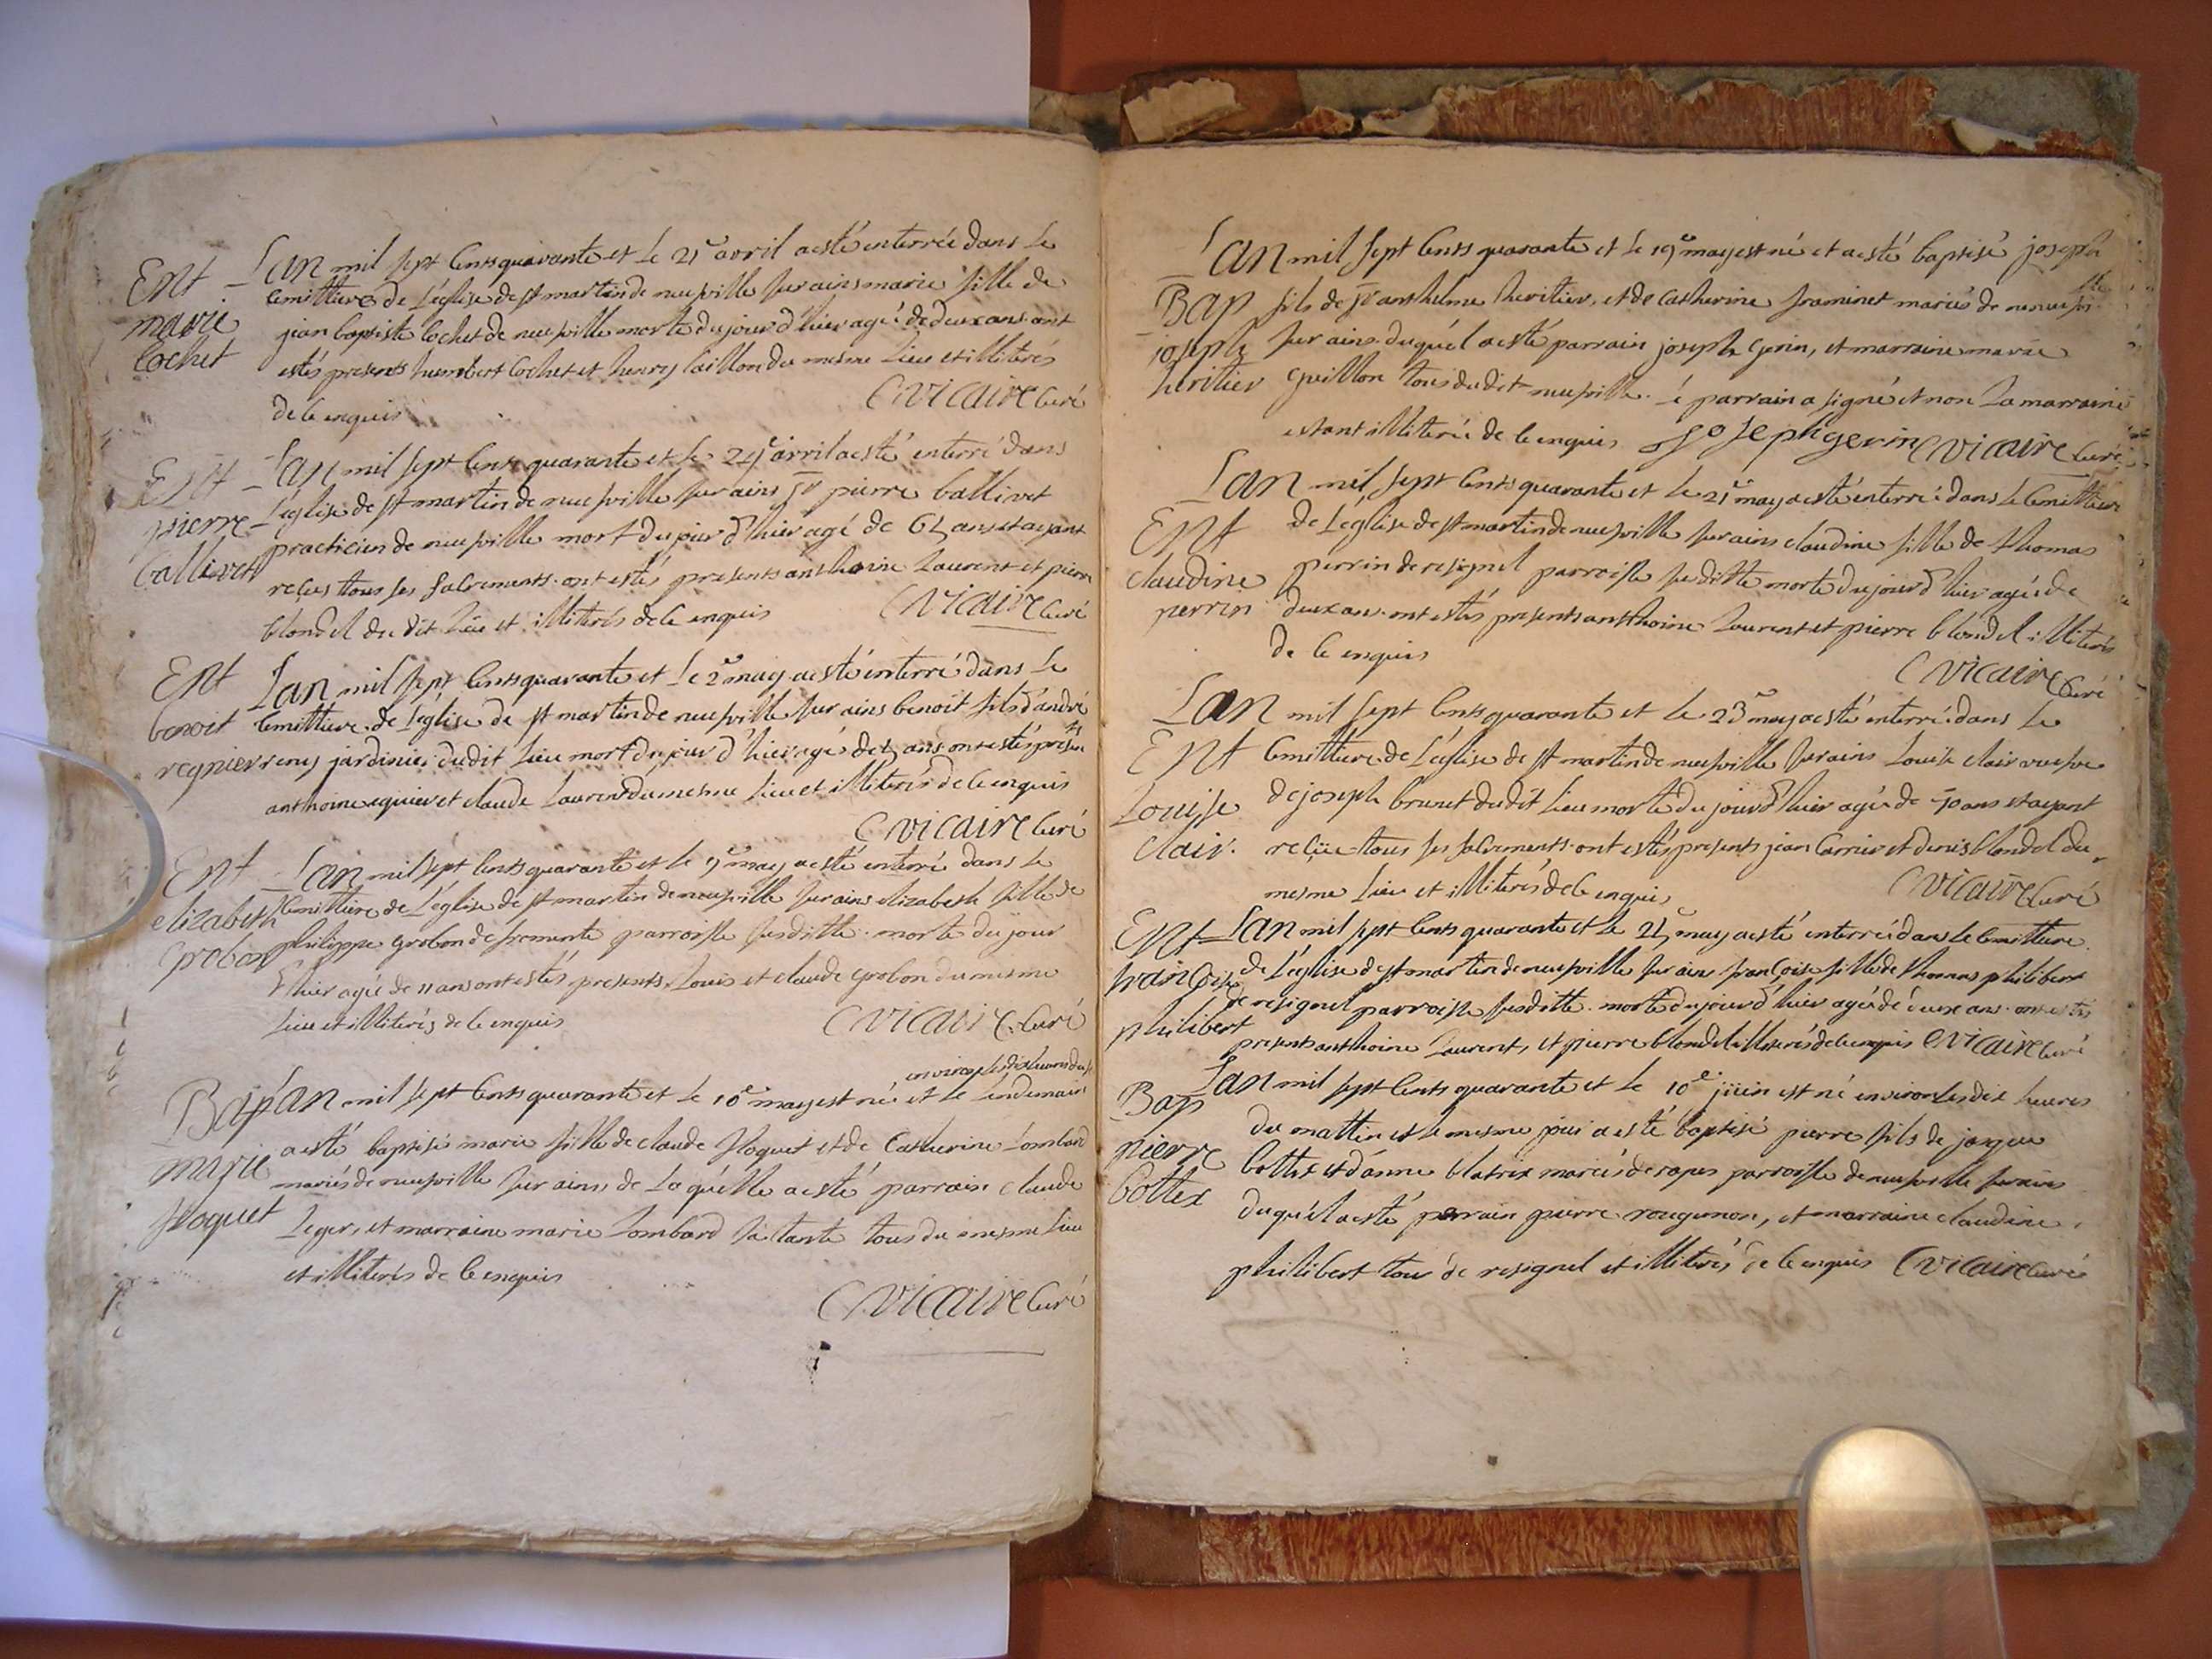 Ent
marie
Cochet
Lan mil sept cents quarante et le 21e avril a esté enterrée dans le
cemittiere de l'église de st martin de neufville sur ains marie fille de
jean baptiste cochet de neufville morte du jour d'hier agée de deux ans ont
estés presents humbert cochet et henry caillon du mesme lieu et illiterés
de ce enquis C vicaire curé
Ent
pierre
Ballivet
Lan mil sept cents quarante et le avril a esté enterré dans
l'église de st martin de neufville sur ains sr pierre ballivet
practicien de neufville mort du jour d'hier agé de ans et ayant
reçus tous ses sacrements ont estés presents anthoine Laurent et pierre
blondel du dit lieu et illiterés de ce enquis C vicaire curé
Ent
benoit
regnier
Lan mil sept cents quarante et le 2e may a esté enterré dans le
cemittiere de l'église de st martin de neufville sur ains benoit fils d'andré
jardinier dudit lieu mort du jour d'hier agé de ans ont estés presents
anthoine et claude Laurent du mesme lieu et illiterés de ce enquis
C vicaire curé
Ent
elizabeth
Grobon
Lan mil sept cents quarante et le 9e may a esté enterré dans le
cemittiere de l'église de st martin de neufville sur ains elizabeth fille de
philippe grobon de fromente parroisse susditte morte du jour
d'hier agée de 11 ans ont estés presents Louis et claude grobon du mesme
lieu et illiterés de ce enquis C vicaire curé
Bap
marie
floquet
environ les dix heures du
Lan mil sept cents quarante et le 10e may est né et le lendemain
a esté baptisé marie fille de claude floquet et de Catherine Lombard
mariés de neufville sur ains de laquélle a esté parrain claude
Leger, et marraine marie Lombard sa tante tous du mesme lieu
et illiterés de ce enquis
C vicaire curé
Bap
joseph
heritier
Lan mil sept cents quarante et le 19e may est né et a esté baptisé joseph
fils de sr anthelme heritier, et de catherine framinet mariés de neufville
sur ains duquél a esté parrain joseph Gerin, et marraine marie
Guillon tous dudit neufville. Le parrain a signé et non la marraine
estant illiterée de ce enquis Joseph gerin C vicaire curé
Ent
claudine
perrin
Lan mil sept cents quarante et le 21e may a esté enterré dans le cemittiere
de l'église de st martin de neufville sur ains claudine fille de thomas
perrin de resignel parroisse susditte morte du jour d'hier agée de
deux ans ont estés presents anthoine Laurent et pierre blondel illiterés
de ce enquis
C vicaire curé
Ent
Louise
clair.
Lan mil sept cents quarante et le 23e may a esté enterré dans le
cemittiere de l'église de st martin de neufville sur ains Louise clair veufve
de joseph brunet dudit lieu morte du jour d'hier agée de 70 ans et ayant
reçüe tous ses sacrements ont estés presents jean Carrier et denis blondel du
mesme lieu et illiterés de ce enquis C vicaire curé
Ent
françoise
philibert
Lan mil sept cents quarante et le may a esté enterré dans le cemittiere
de l'église de st martin de neufville sur ains françoise fille de thomas philibert
de resignel parroisse susditte morte du jour d'hier agée de deux ans ont estés
presents anthoine Laurent, et pierre blondel illiterés de ce enquis C vicaire curé
Bap
pierre
Bottex
Lan mil sept cents quarante et le 10e juin est né environ les dix heures
du mattin et le mesme jour a esté baptisé pierre fils de jacque
bottex et d'anne blatrix mariés de rapes parroisse de neufville sur ains
duquél a esté parrain pierre rougemon, et marraine claudine
philibert tous de resignel et illiterés de ce enquis C vicaire curé